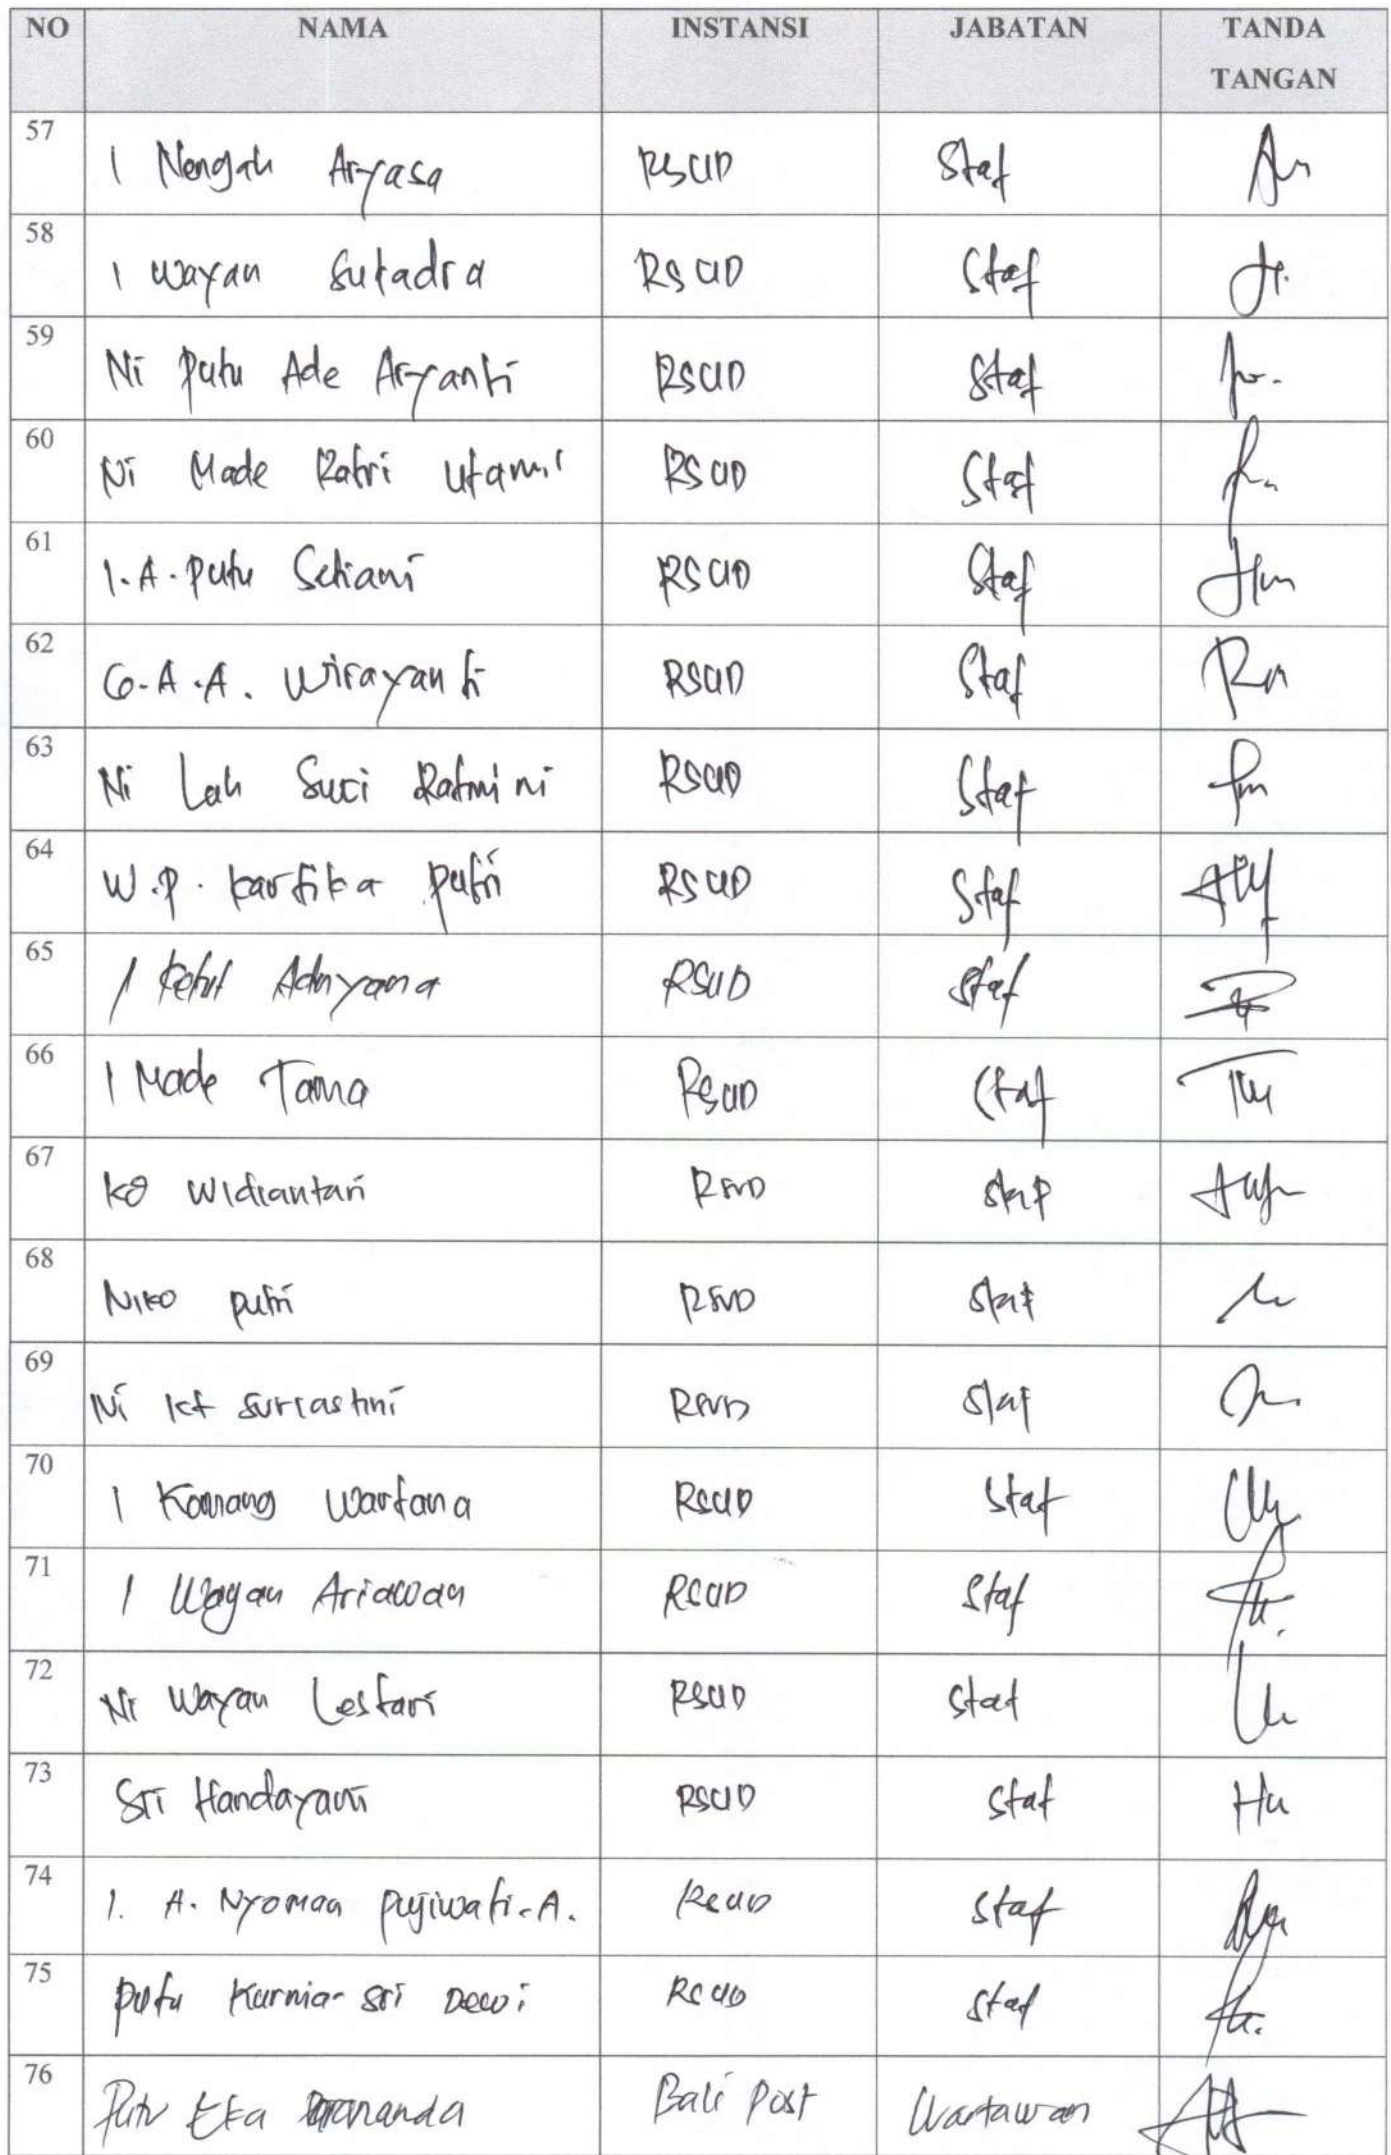 NO NAMA INSTANSI JABATAN TANDA TANGAN
57 I Nengah Aryasa RSUD Staf
58 I Wayan Sukadra RSUD Staf
59 Ni Putu Ade Aryanti RSUD Staf
60 Ni Made Ratri Utami RSUD Staf
61 I.A.Putu Setiani RSUD Staf
62 G.A.A. Wirayanti RSUD Staf
63 Ni Luh Suci Ratmini RSUD Staf
64 W.P. Kartika Putri RSUD Staf
65 I Ketut Adnyana RSUD Staf
66 I Made Tama RSUD Staf
67 Kd Widiantari RSUD Staf
68 Niko Putri RSUD Staf
69 Ni Kt Surastini RSUD Staf
70 I Komang Wartana RSUD Staf
71 I Wayan Ariawan RSUD Staf
72 Ni Wayan Lestari RSUD Staf
73 Sri Handayani RSUD Staf
74 I. A. Nyoman Pujiwati.A. RSUD Staf
75 Putu Kurnia Sri Dewi RSUD Staf
76 Putu Eka Bali Post Wartawan